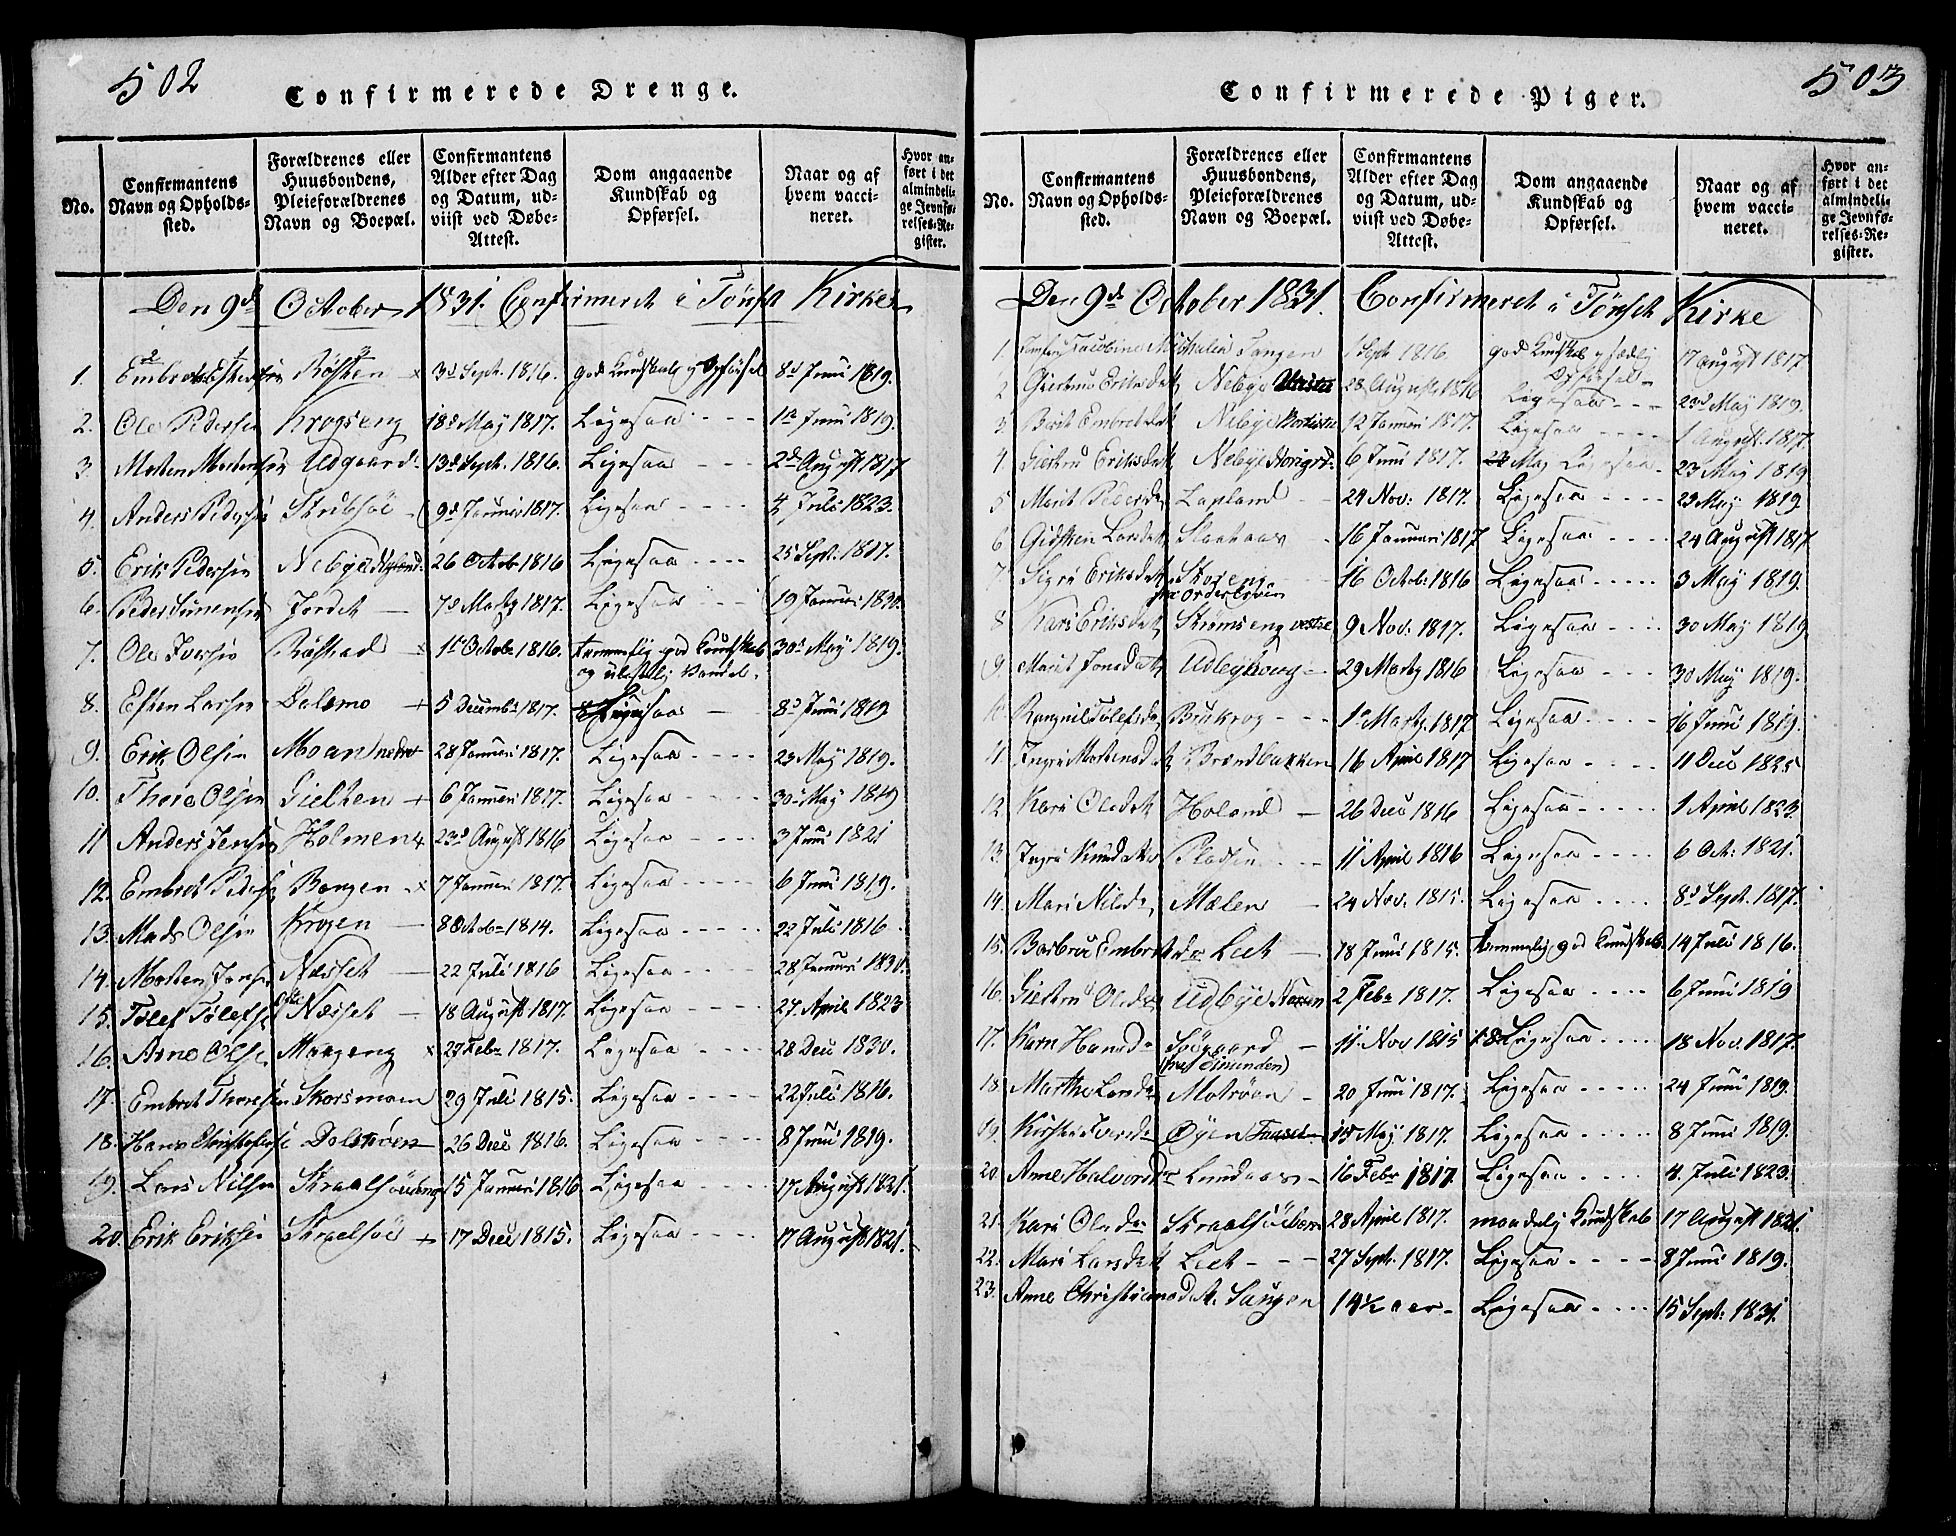 502
Confirmerede Drenge.
No.
Confirmantens Navn og Opholds-sted.
Forældrenes eller Huusbondens, Pleieforældrenes Navn og Boepæl.
Confirmantens Alder efter Dag og Datum, ud-viist ved Døbe-Attest.
Dom angaaende Kundskab og Opførsel.
Naar og af hvem vacci-neret.
Hvor an-ført i det almindeli-ge Jevnfø-relses-Re-gister.
Den 9de October 1831. Confirmeret i Tønset Kirke
1. Embret Røsten 3d Sept. 1816. god Kundskab og Opførsel 8d Juni 1819.
2. Ole Pedersen Krogseng 18d May 1817. Ligesaa 1ste Juni 1819.
3. Morten Mortensen Udgaard 13d Sept. 1816. Ligesaa 2d August 1817
4. Anders Pedersen 9d Januari 1817. Ligesaa 4 Juli 1823.
5. Erik Pedersen Nebye 26 Octob. 1816 Ligesaa 25 Sept. 1817.
6. Peder Simensen Jordet 7d Martz 1817. Ligesaa 19 Januari 1830.
7. Ole Iversen Røstad 1ste Octob. 1816. temmelig god Kundskab 30d May 1819.
og ulastelig Vandel.
8. Esten Larsen Dalsmo 5 Decembr 1817. Ligesaa 8d Juni 1819
9. Erik Olsen Moan nedre 28 Januari 1817. Ligesaa 23 May 1819.
10. Thore Olsen Gielten 6 Januari 1817. Ligesaa 30d May 1819
11 Anders Jensen Holmen 23d August 1816 Ligesaa 3 Juni 1821
12. Embret Peders. Bangen 7 Januari 1817. Ligesaa 6 Juni 1819.
13. Mads Olsen Krogen 8 Octob. 1814. Ligesaa 22 Juli 1816.
14. Morten Jonsen Næsset 22 Juli 1816 Ligesaa 28 Januari 1830.
15. Tølef Tølefs. Næsset 18 August 1817. Ligesaa 27. April 1823
16. Arne Olsen Moseng 27 Febr 1817. Ligesaa 28 Dec 1830.
17. Embret Thoresen Skorsmoen 29 Juli 1815. Ligesaa 22 Juli 1816.
18. Hans Christophers. Dalstøen 26 Dec 1816. Ligesaa 8 Juni 1819.
19. Lars Nilsen 15 Januari 1816 Ligesaa 17 August 1821.
20. Erik Eriksen Skraalsøe 17 Dec 1815. Ligesaa 17 August 1821.
503
Confirmerede Piger.
No.
Confirmantens Navn og Opholds-sted.
Forældrenes eller Huusbondens, Pleieforældrenes Navn og Boepæl.
Confirmantens Alder efter Dag og Datum, ud-viist ved Døbe-Attest.
Dom angaaende Kundskab og Opførsel.
Naar og af hvem vacci-neret.
Hvor an-ført i det almindeli-ge Jevnfø-relses-Re-gister.
Den 9de October 1831. Confirmeret i Tønset Kirke
1. Jacobine Tangen 1 Sept. 1816. god Kundskab og sædelig 17 august 1817
Opførsel
2 Giertru Eriksdat. Nebye 28 August 1816 Ligesaa 23d May 1819.
3. Berit Embretsdat. Nebye 12 Januari 1817. Ligesaa 1 August 1817.
4. Giertru Eriksdat. Nebye 6 Juni 1817. Ligesaa 23 May 1819
5 Marit Pedersdat. Lapland 24 Nov: 1817. Ligesaa 23 May 1819
6 Gidsken Larsdat. 16 Januari 1817 Ligesaa 24 August 1817
7 Sigri Eriksdat. Skoreng 16 Octob: 1816 Ligesaa 3 May 1819.
8 Kari Eriksdat. Strømseng vestre 9 Nov: 1817. Ligesaa 30 May 1819
9 Marit Jonsdat. Udbyhaug 29 Martz 1816 Ligesaa 30 May 1819.
10 Rangnil Tølefsda. Brukrog 1ste Martz 1817 Ligesaa 16 Juni 1819.
11 Ingri Mortensdat. Brændbakken 16 April 1817 Ligesaa 11 Dec 1825
12. Kari Olsdat. Holand 26 Dec 1816 Ligesaa 1 April 1823.
13. Ingri Knudsda. Pladsen 11 April 1816 Ligesaa 6 Oct: 1821.
14. Mari Nilsda. Mælen 24 Nov. 1815. Ligesaa 8d Sept. 1817.
15. Barbroe Embretsda. Leet 18 Juni 1815. temmelig god Kundskab 14 Juli 1816.
16. Giertru Olsda. Udbye 2 Febr 1817. Ligesaa 6 Juni 1819
17. Karn Hansda. Søegaard 11 Nov 1815 Ligesaa 18 Nov. 1817.
(ved Femunden)
18. Marthe Larsda. Motrøen 20 Juni 1817. Ligesaa 24 Juni 1819.
19. Kirsti Iversda. Øyen 15 May 1817. Ligesaa 8 Juni 1819.
20. Anne Halvorsda. Lundaas 16 Febr 1817. Ligesaa 4 Juli 1823.
21. Kari Olsda. 28 April 1817. maadelig Kundskab 17 August 1821.
22. Mari Larsdat. Leet 27 Sept. 1817. Ligesaa 8 Juni 1819.
23. Anne Christiansdat. Tangen 14½ aar Ligesaa 15 Sept. 1831.